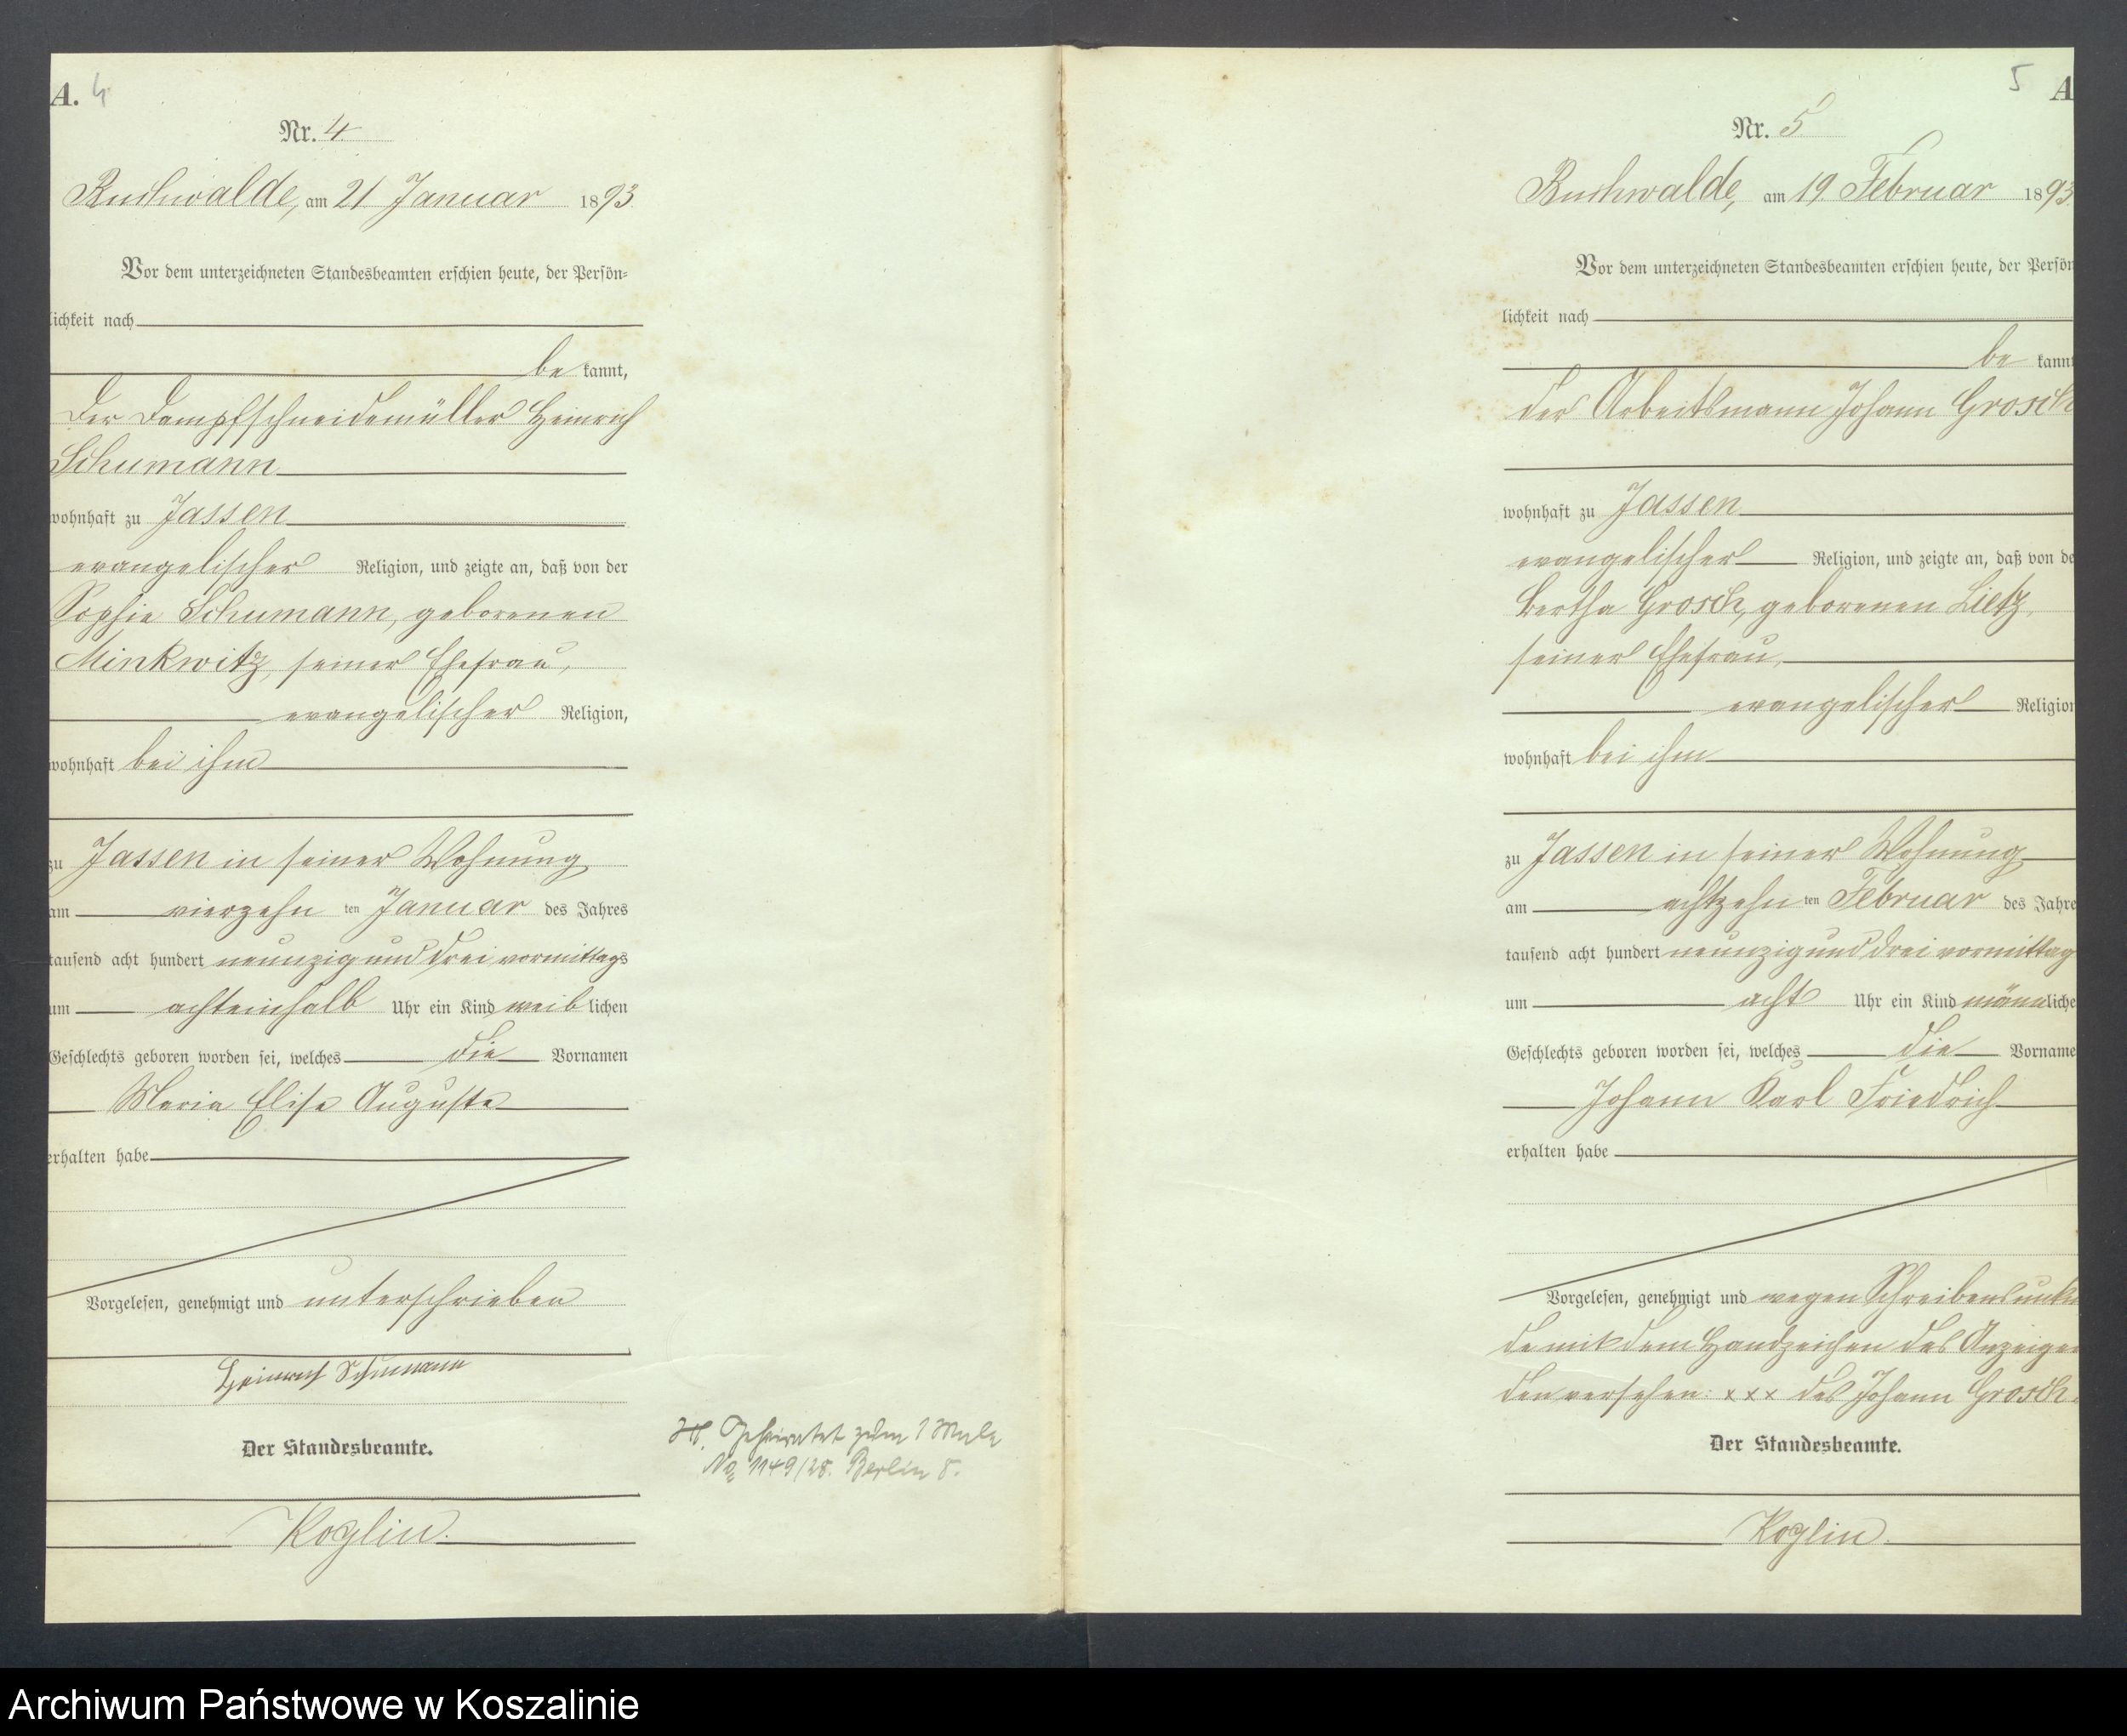 A. 4
Nr. 4
Buchwalde, am 21 Januar 1893.
Vor dem unterzeichneten Standesbeamten erschien heute, der Persön-
lichkeit nach
be kannt,
der Dampfschneidemüller Heinrich
Schumann
wohnhaft zu Jassen
evangelischer Religion, und zeigte an, daß von der
Sophie Schumann, geborenen
Minkwitz, seiner Ehefrau,
evangelischer Religion,
wohnhaft bei ihm
zu Jassen in seiner Wohnung
am vierzehn ten Januar des Jahres
tausend acht hundert neunzig und drei vormittags
um achteinhalb Uhr ein Kind weiblichen
Geschlechts geboren worden sei, welches die Vornamen
Maria Elise Auguste
erhalten habe
Vorgelesen, genehmigt und unterschrieben
Heinrich Schumann
Der Standesbeamte.
Koglin.
Geheiratet zum 1 Male
No 1149/28. Berlin 8.
5 A
Nr. 5
Buchwalde, am 19. Februar 1893.
Vor dem unterzeichneten Standesbeamten erschien heute, der Persön
lichkeit nach
be kannt
der Arbeitsmann Johann Grosch
wohnhaft zu Jassen
evangelischer Religion, und zeigte an, daß von de
Bertha Grosch, geborenen Lietz,
seiner Ehefrau,
evangelischer Religion
wohnhaft bei ihm
zu Jassen in seiner Wohnung
am achtzehn ten Februar des Jahre
tausend acht hundert neunzig und drei vormittag
um acht Uhr ein Kind männliche
Geschlechts geboren worden sei, welches die Vorname
Johann Karl Friedrich
erhalten habe
Vorgelesen, genehmigt und wegen Schreibensunkun
de mit dem Handzeichen des Anzeigen
den versehen: xxx des Johann Grosch.
Der Standesbeamte.
Koglin.
Archiwum Państwowe w Koszalinie